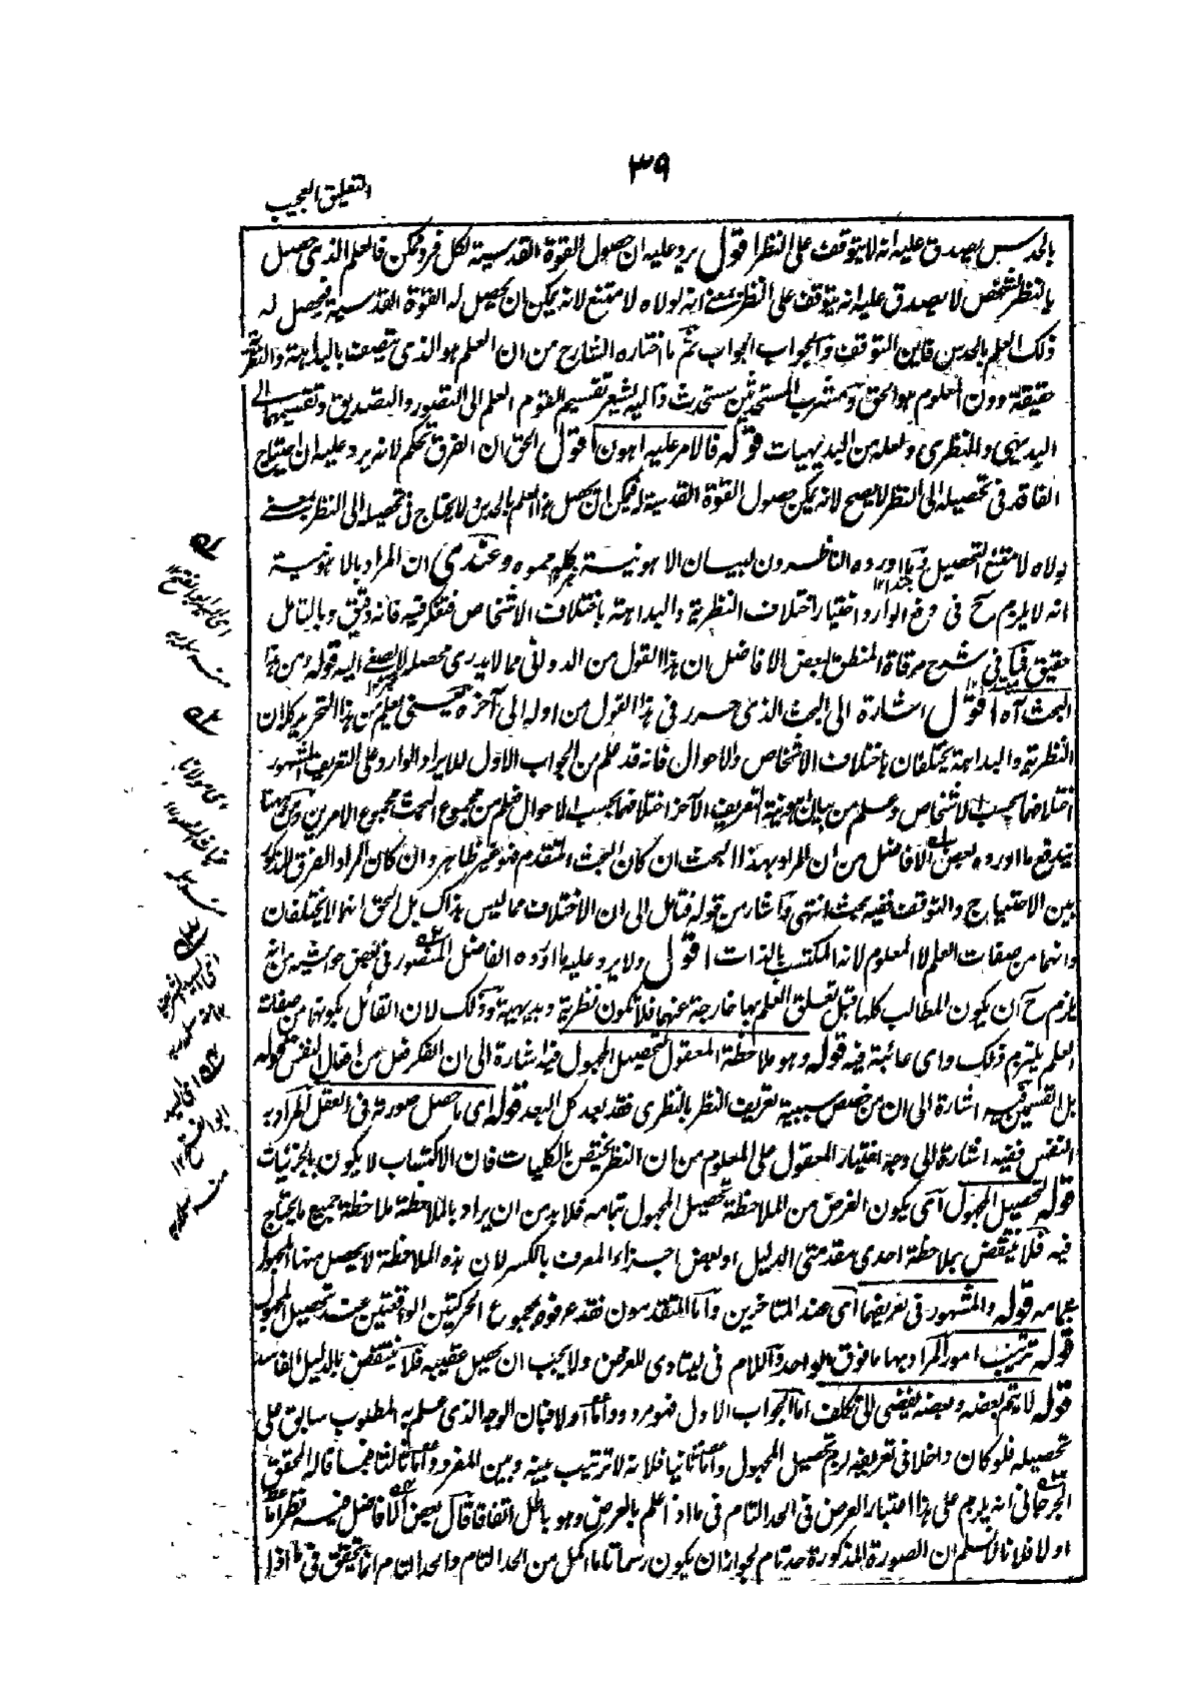 ٣٩
التعليق العجيب
بالحدس يصدق عليه انه لا يتوقف على النظر اقول يرد عليه ان حصول القوة القدسية لكل فرد ممكن فالعلم الذى حصل
بالنظر لشخص لا يصدق عليه انه يتوقف على النظر بمعنى انه لولاه لامتنع لانه يمكن ان يحصل له القوة القدسية فيحصل له
ذلك العلم بالحدس فاين التوقف والجواب الجواب ثم ما اختاره الشارح من ان العلم هو الذى يتصف بالبداهة والنظرية
حقيقة دون المعلوم هو الحق ومشرب المستحدثين مستحدث واليه يشير تقسيم القوم العلم الى التصور والتصديق وتقسيمهما الى
البديهى والنظرى ولعله من البديهيات قوله فالامر عليه اهون اقول الحق ان الفرق تحكم لانه يرد عليه ان احتياج
الفاقد فى تحصيله الى النظر لا يصح لانه يمكن حصول القوة القدسية له فيمكن ان يحصل هذا العلم بالحدس ولا يحتاج فى تحصيله الى النظر بمعنى
لولاه لامتنع التحصيل وما اورده الناظرون لبيان الاهونية كلها مموه وعندى ان المراد بالاهونية
انه لا يلزم ح فى دفع الوارد اختيار اختلاف النظرية والبداهة باختلاف الاشخاص فتفكر فيه فانه دقيق وبالتامل
حقيق فما فى شرح مرقاة المنطق لبعض الافاضل ان هذا القول من الدوانى مما لا يدرى محصله لا يصغى اليه قوله ومن هذا
البحث آه اقول اشارة الى البحث الذى حرر فى هذا القول من اوله الى آخره يعنى يعلم من هذا التحرير كلان
النظرية والبداهة يختلفان باختلاف الاشخاص والاحوال فانه قد علم من الجواب الاول للايراد الوارد على التعريف المشهور
اختلافهما بحسب الاشخاص وعلم من بيان اهونية التعريف الآخر اختلافهما بحسب الاحوال فعلم من مجموع البحث مجموع الامرين ومن ههنا
يندفع ما اورده بعض الافاضل من ان المراد بهذا البحث ان كان البحث المتقدم فهو غير ظاهر وان كان المراد الفرق المذكور
بين الاحتياج والتوقف ففيه بحث انتهى واشار من قوله فتامل الى ان الاختلاف مما ليس بذاك بل الحق انهما لا يختلفان
وانهما من صفات العلم لا المعلوم لانه المكتسب بالذات اقول ولا يرد عليه ما اورده الفاضل المنصور فى بعض حواشيه من انه
يلزم ح ان يكون المطالب كلها قبل تعلق العلم بها خارجة عنهما فلا تكون نظرية وبديهية وذلك لان القائل بكونهما من صفات
العلم يلتزم ذلك واى عائبة فيه قوله وهو ملاحظة المعقول لتحصيل المجهول فيه اشارة الى ان الفكر فعل من افعال النفس قوله
بل القسمين فيه اشارة الى ان من خصص سببية تعريف النظر بالنظرى فقد بعد كل البعد قوله اى ما حصل صورته فى العقل المراد به
النفس ففيه اشارة الى وجه اختيار المعقول على المعلوم من ان النظر يختص بالكليات فان الاكتساب لا يكون بالجزئيات
قوله لتحصيل المجهول اى يكون الغرض من الملاحظة تحصيل المجهول بتمامه فلا بد من ان يراد بالملاحظة ملاحظة جميع ما يحتاج
فيه فلا ينتقض بملاحظة احدى مقدمتى الدليل او بعض اجزاء المعرف بالكسر لان بهذه الملاحظة لا يحصل منها المجهول
بتمامه قوله والمشهور فى تعريفها اى عند المتاخرين واما المتقدمون فقد عرفوه بمجموع الحركتين الواقعتين عند تحصيل المجهول
قوله ترتيب امور المراد بها ما فوق الواحد واللام فى ليتادى للغرض ولا يجب ان يحصل عقيبه فلا ينتقض بالدليل الفاسد
قوله لا يتم بعضه وبعضه يفضى الى تكلف اما الجواب الاول فهو مردود اما اولا فبان الوجه الذى علم به المطلوب سابق على
تحصيله فلو كان داخلا فى تعريفه لزم تحصيل المجهول واما ثانيا فلانه لا ترتيب بينه وبين المفرد واما ثالثا فبما قاله المحقق
الجرجانى انه يلزم على هذا اعتبار العرض فى الحد التام فى ما اذا علم بالعرض وهو باطل اتفاقا قال بعض الافاضل فيه نظر اما
اولا فلانا لا نسلم ان الصورة المذكورة حد تام لجواز ان يكون رسما تاما اكمل من الحد التام والحد التام انما يتحقق فى ما اذا